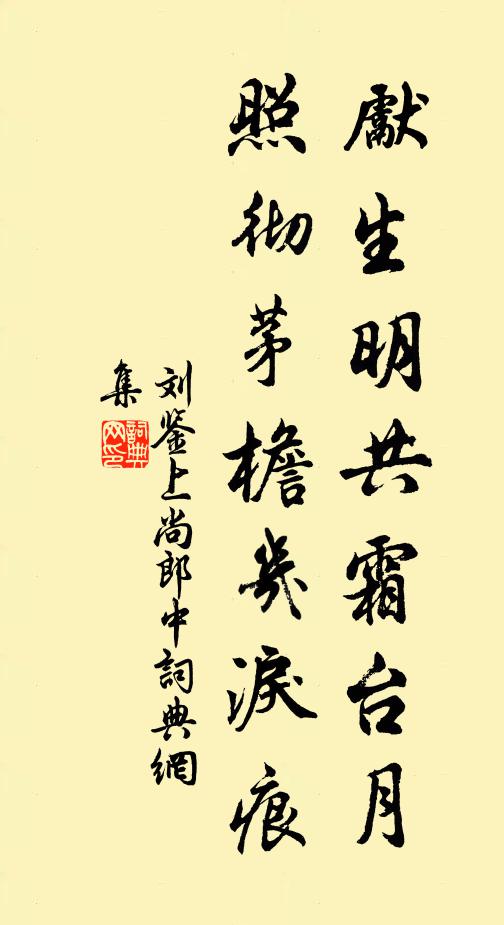 獻生明共霜台月
照彻茅檐幾淚痕
刘鉴上尚郎中詞典網
集
詞典
网印